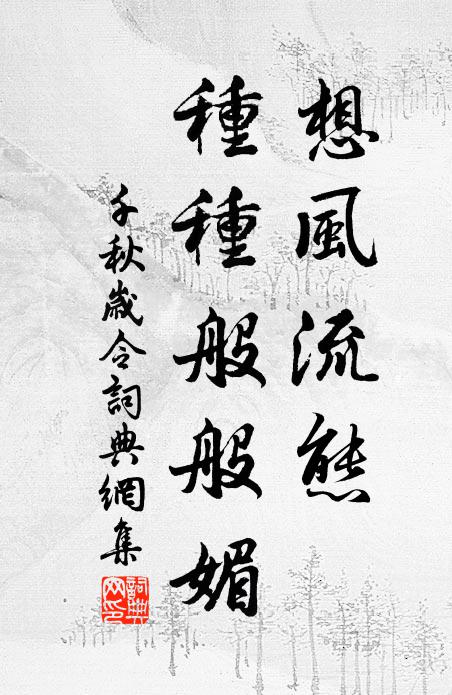 想風流態
種種般般媚
千秋歲令詞典網集
詞典
网印